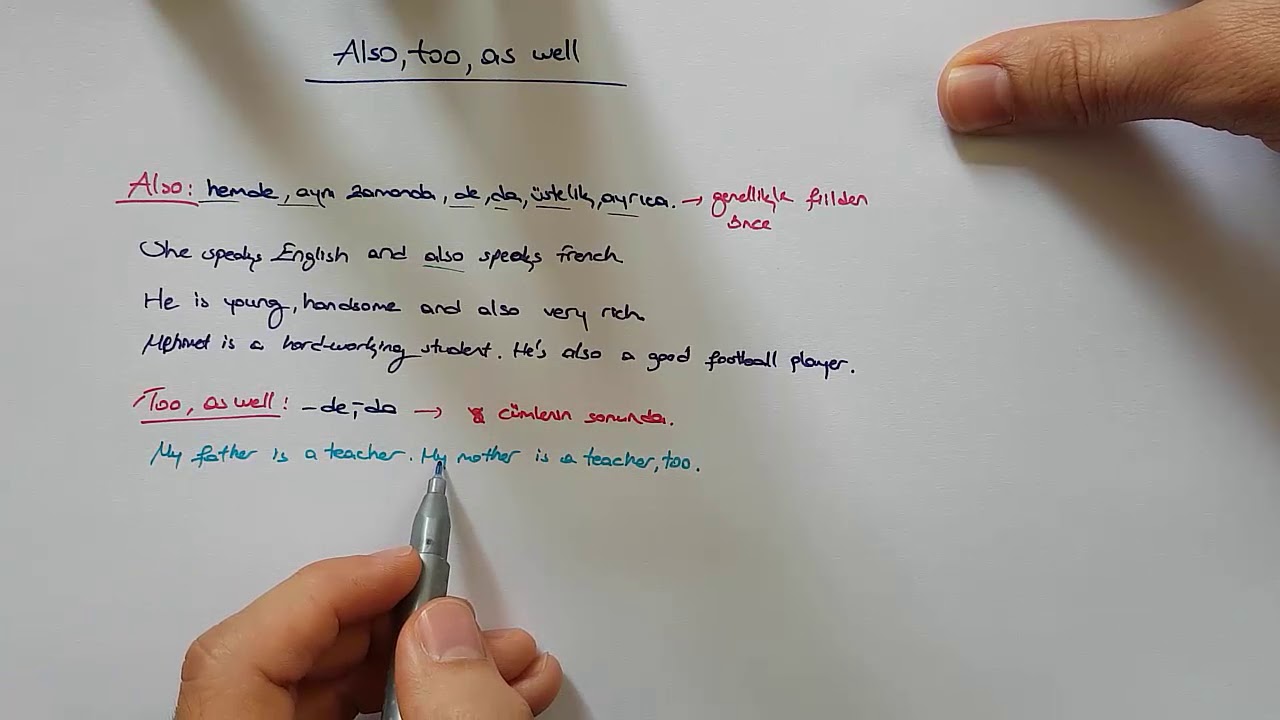 Also, too, as well
Also: hemde, aynı zamanda, de, da, üstelik, ayrıca. → genellikle fiilden
önce
She speaks English and also speaks French.
He is young, handsome and also very rich.
Mehmet is a hard-working student. He's also a good football player.
Too, as well: -de, -da → cümlenin sonunda.
My father is a teacher. My mother is a teacher, too.